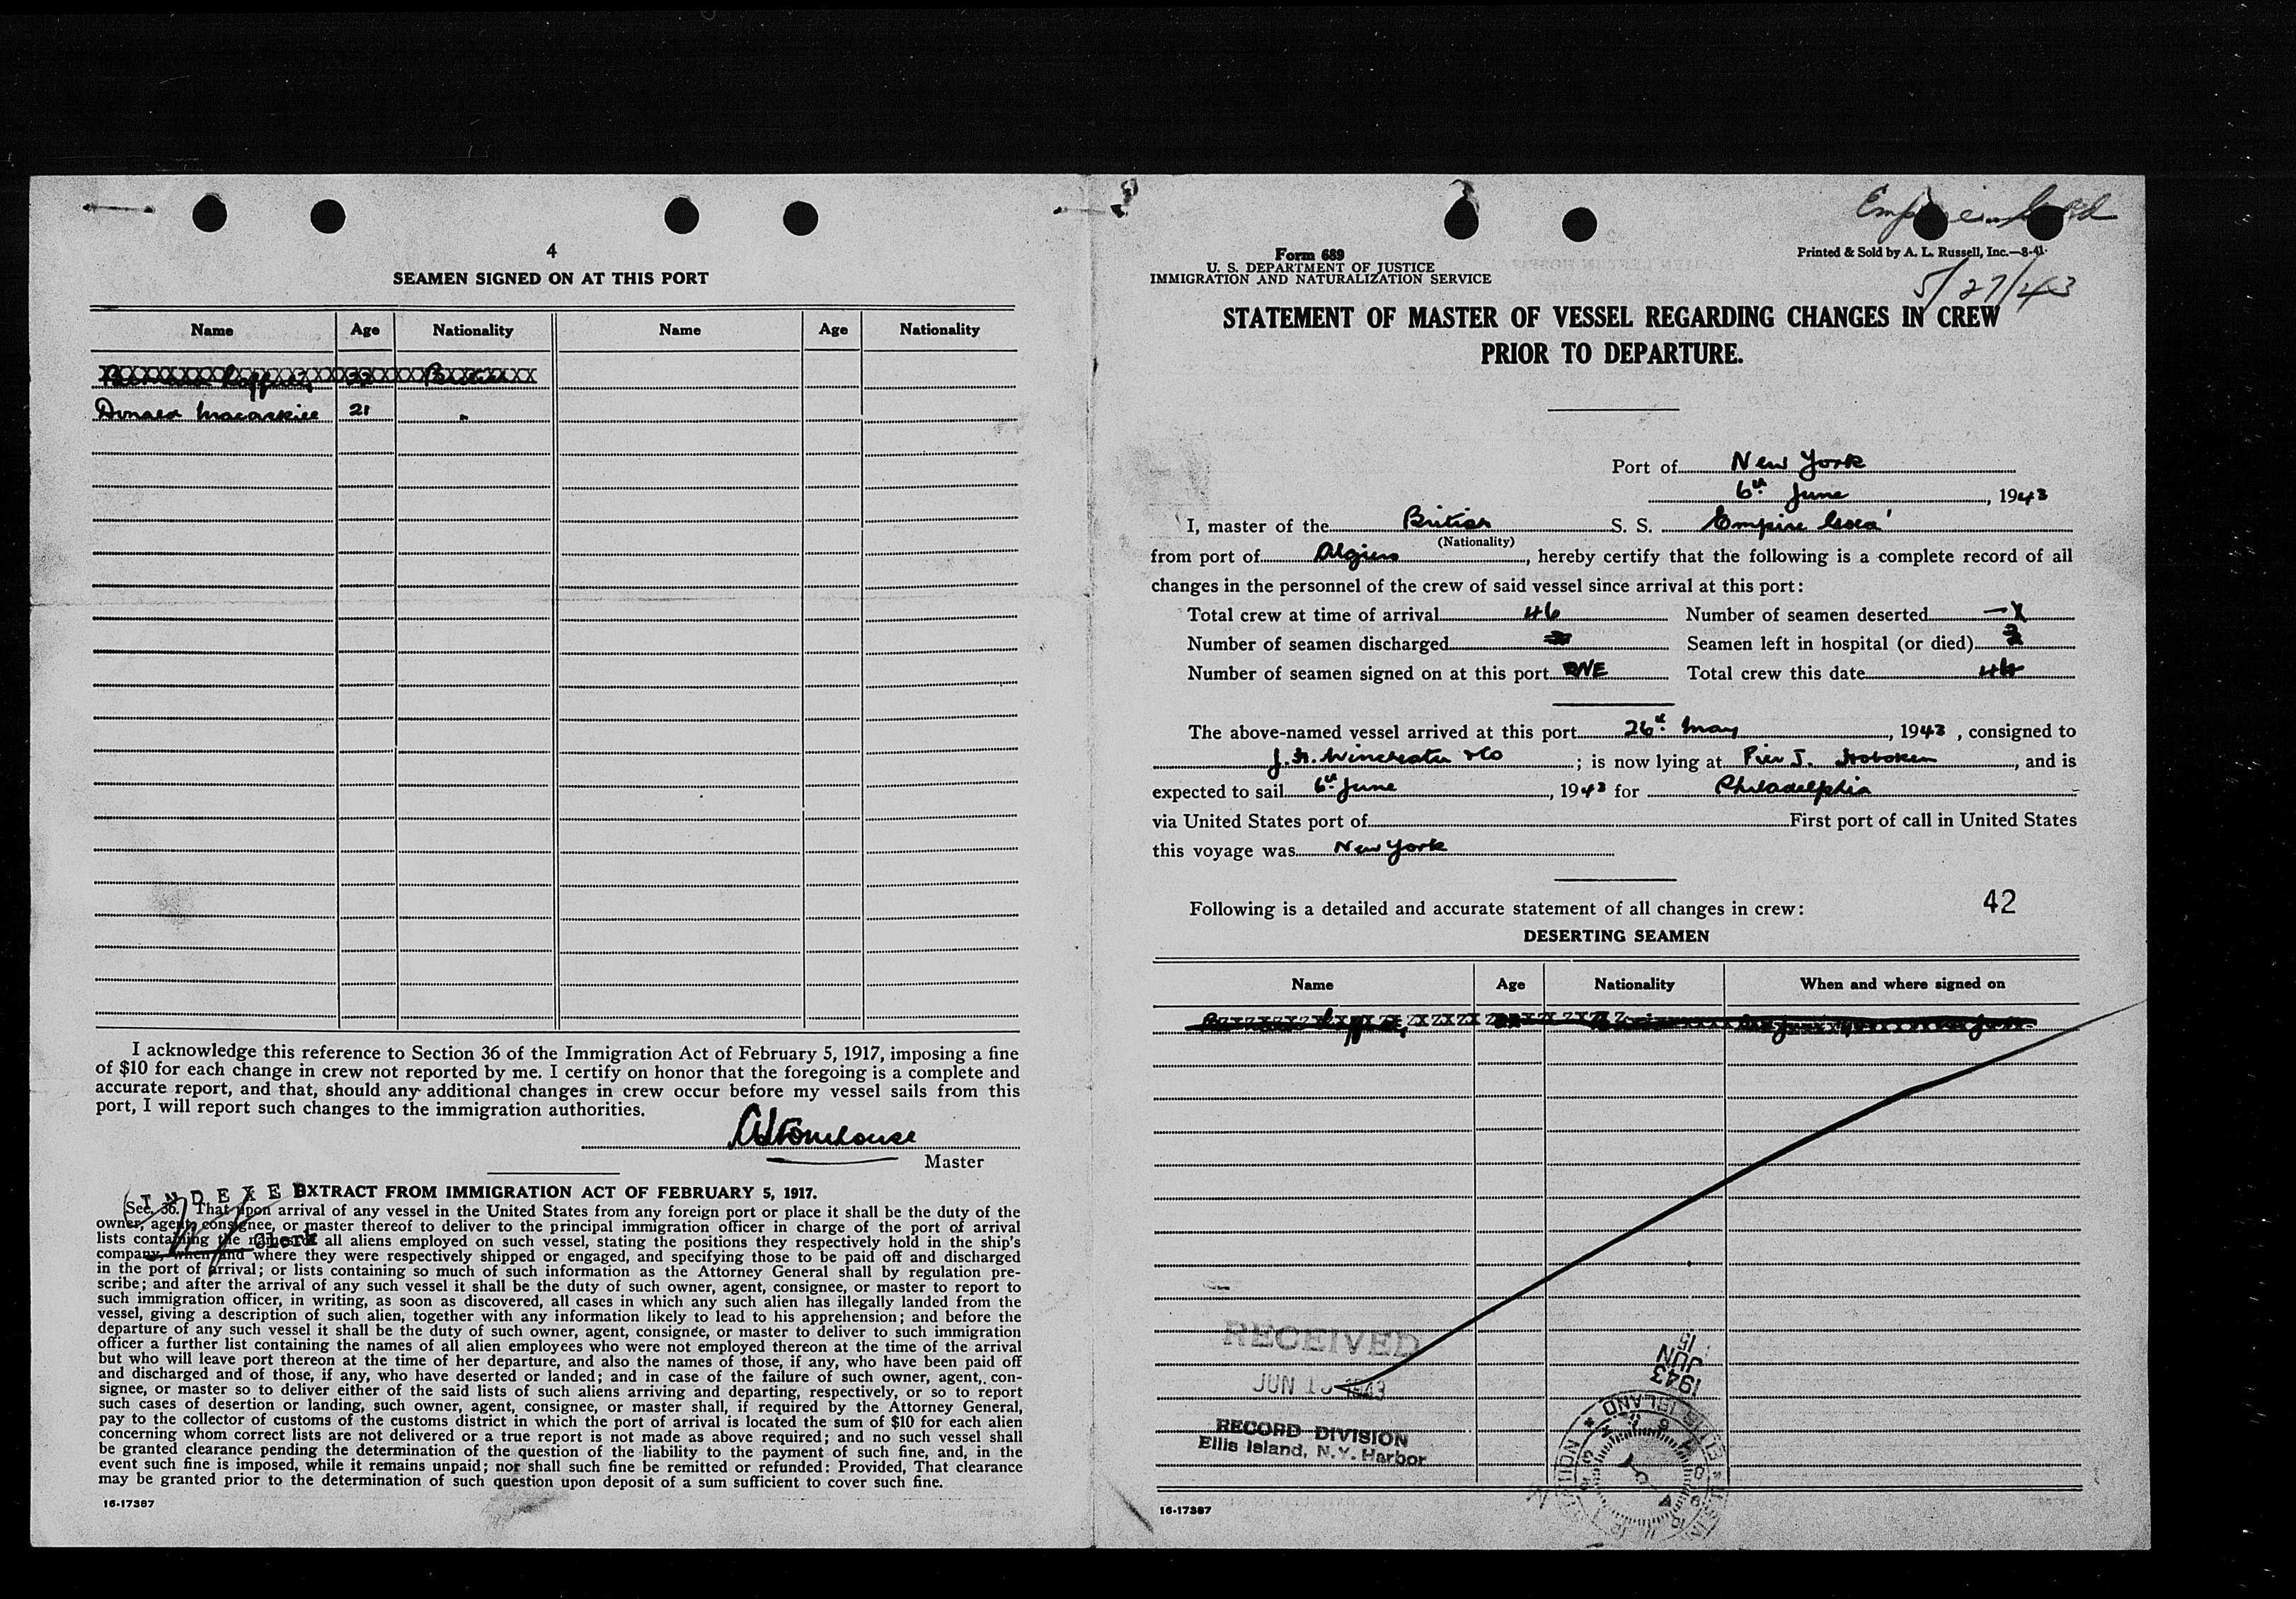 4
SEAMEN SIGNED ON AT THIS PORT
Name Age Nationality Name Age Nationality
Donald Macaskill 21 "
I acknowledge this reference to Section 36 of the Immigration Act of February 5, 1917, imposing a fine
of $10 for each change in crew not reported by me. I certify on honor that the foregoing is a complete and
accurate report, and that, should any additional changes in crew occur before my vessel sails from this
port, I will report such changes to the immigration authorities.
Stonehouse
Master
INDEXED
EXTRACT FROM IMMIGRATION ACT OF FEBRUARY 5, 1917.
(Sec. 36. That upon arrival of any vessel in the United States from any foreign port or place it shall be the duty of the
owner, agent, consignee, or master thereof to deliver to the principal immigration officer in charge of the port of arrival
lists containing the names of all aliens employed on such vessel, stating the positions they respectively hold in the ship's
Clerk
company, when and where they were respectively shipped or engaged, and specifying those to be paid off and discharged
in the port of arrival; or lists containing so much of such information as the Attorney General shall by regulation pre-
scribe; and after the arrival of any such vessel it shall be the duty of such owner, agent, consignee, or master to report to
such immigration officer, in writing, as soon as discovered, all cases in which any such alien has illegally landed from the
vessel, giving a description of such alien, together with any information likely to lead to his apprehension; and before the
departure of any such vessel it shall be the duty of such owner, agent, consignee, or master to deliver to such immigration
officer a further list containing the names of all alien employees who were not employed thereon at the time of the arrival
but who will leave port thereon at the time of her departure, and also the names of those, if any, who have been paid off
and discharged and of those, if any, who have deserted or landed; and in case of the failure of such owner, agent, con-
signee, or master so to deliver either of the said lists of such aliens arriving and departing, respectively, or so to report
such cases of desertion or landing, such owner, agent, consignee, or master shall, if required by the Attorney General,
pay to the collector of customs of the customs district in which the port of arrival is located the sum of $10 for each alien
concerning whom correct lists are not delivered or a true report is not made as above required; and no such vessel shall
be granted clearance pending the determination of the question of the liability to the payment of such fine, and, in the
event such fine is imposed, while it remains unpaid; nor shall such fine be remitted or refunded: Provided, That clearance
may be granted prior to the determination of such question upon deposit of a sum sufficient to cover such fine.
16-17387
Form 689
U. S. DEPARTMENT OF JUSTICE
IMMIGRATION AND NATURALIZATION SERVICE
Printed & Sold by A. L. Russell, Inc.—8-41
5/27/43
STATEMENT OF MASTER OF VESSEL REGARDING CHANGES IN CREW
PRIOR TO DEPARTURE.
Port of New York
6th June, 1943
I, master of the British S. S. Empire
(Nationality)
from port of Algiers, hereby certify that the following is a complete record of all
changes in the personnel of the crew of said vessel since arrival at this port:
Total crew at time of arrival 46 Number of seamen deserted
Number of seamen discharged Seamen left in hospital (or died)
Number of seamen signed on at this port ONE Total crew this date 44
The above-named vessel arrived at this port 26th May, 1943, consigned to
Winchester & Co; is now lying at Pier J. Hoboken, and is
expected to sail 6th June, 1943 for Philadelphia
via United States port of First port of call in United States
this voyage was New York
Following is a detailed and accurate statement of all changes in crew: 42
DESERTING SEAMEN
Name Age Nationality When and where signed on
RECEIVED
JUN 15 1943
RECORD DIVISION
Ellis Island, N.Y. Harbor
JUN 15
1943
ELLIS ISLAND
16-17387